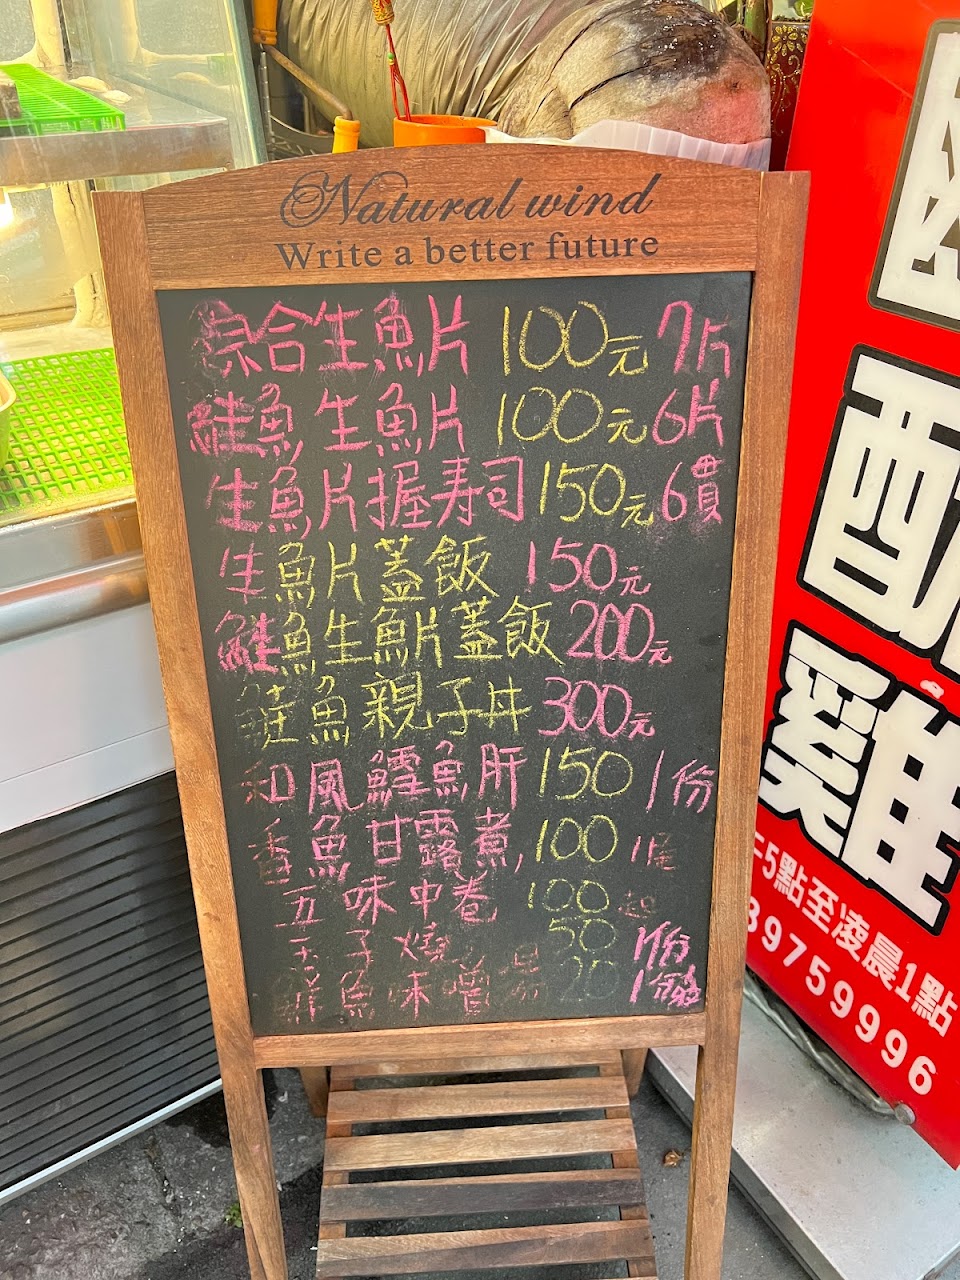 Natural wind
Write a better future
綜合生魚片 100元 7片
鮭魚生魚片 100元 6片
生魚片握寿司 150元 6貫
生魚片蓋飯 150元
鮭魚生魚片蓋飯 200元
鮭魚親子丼 300元
和風鱈魚肝 150 1份
香魚甘露煮 100 1尾
五味中卷 100 起
子燒 50 1份
鮮魚味噌湯 20 1份
酥
雞
5點至凌晨1點
89759996